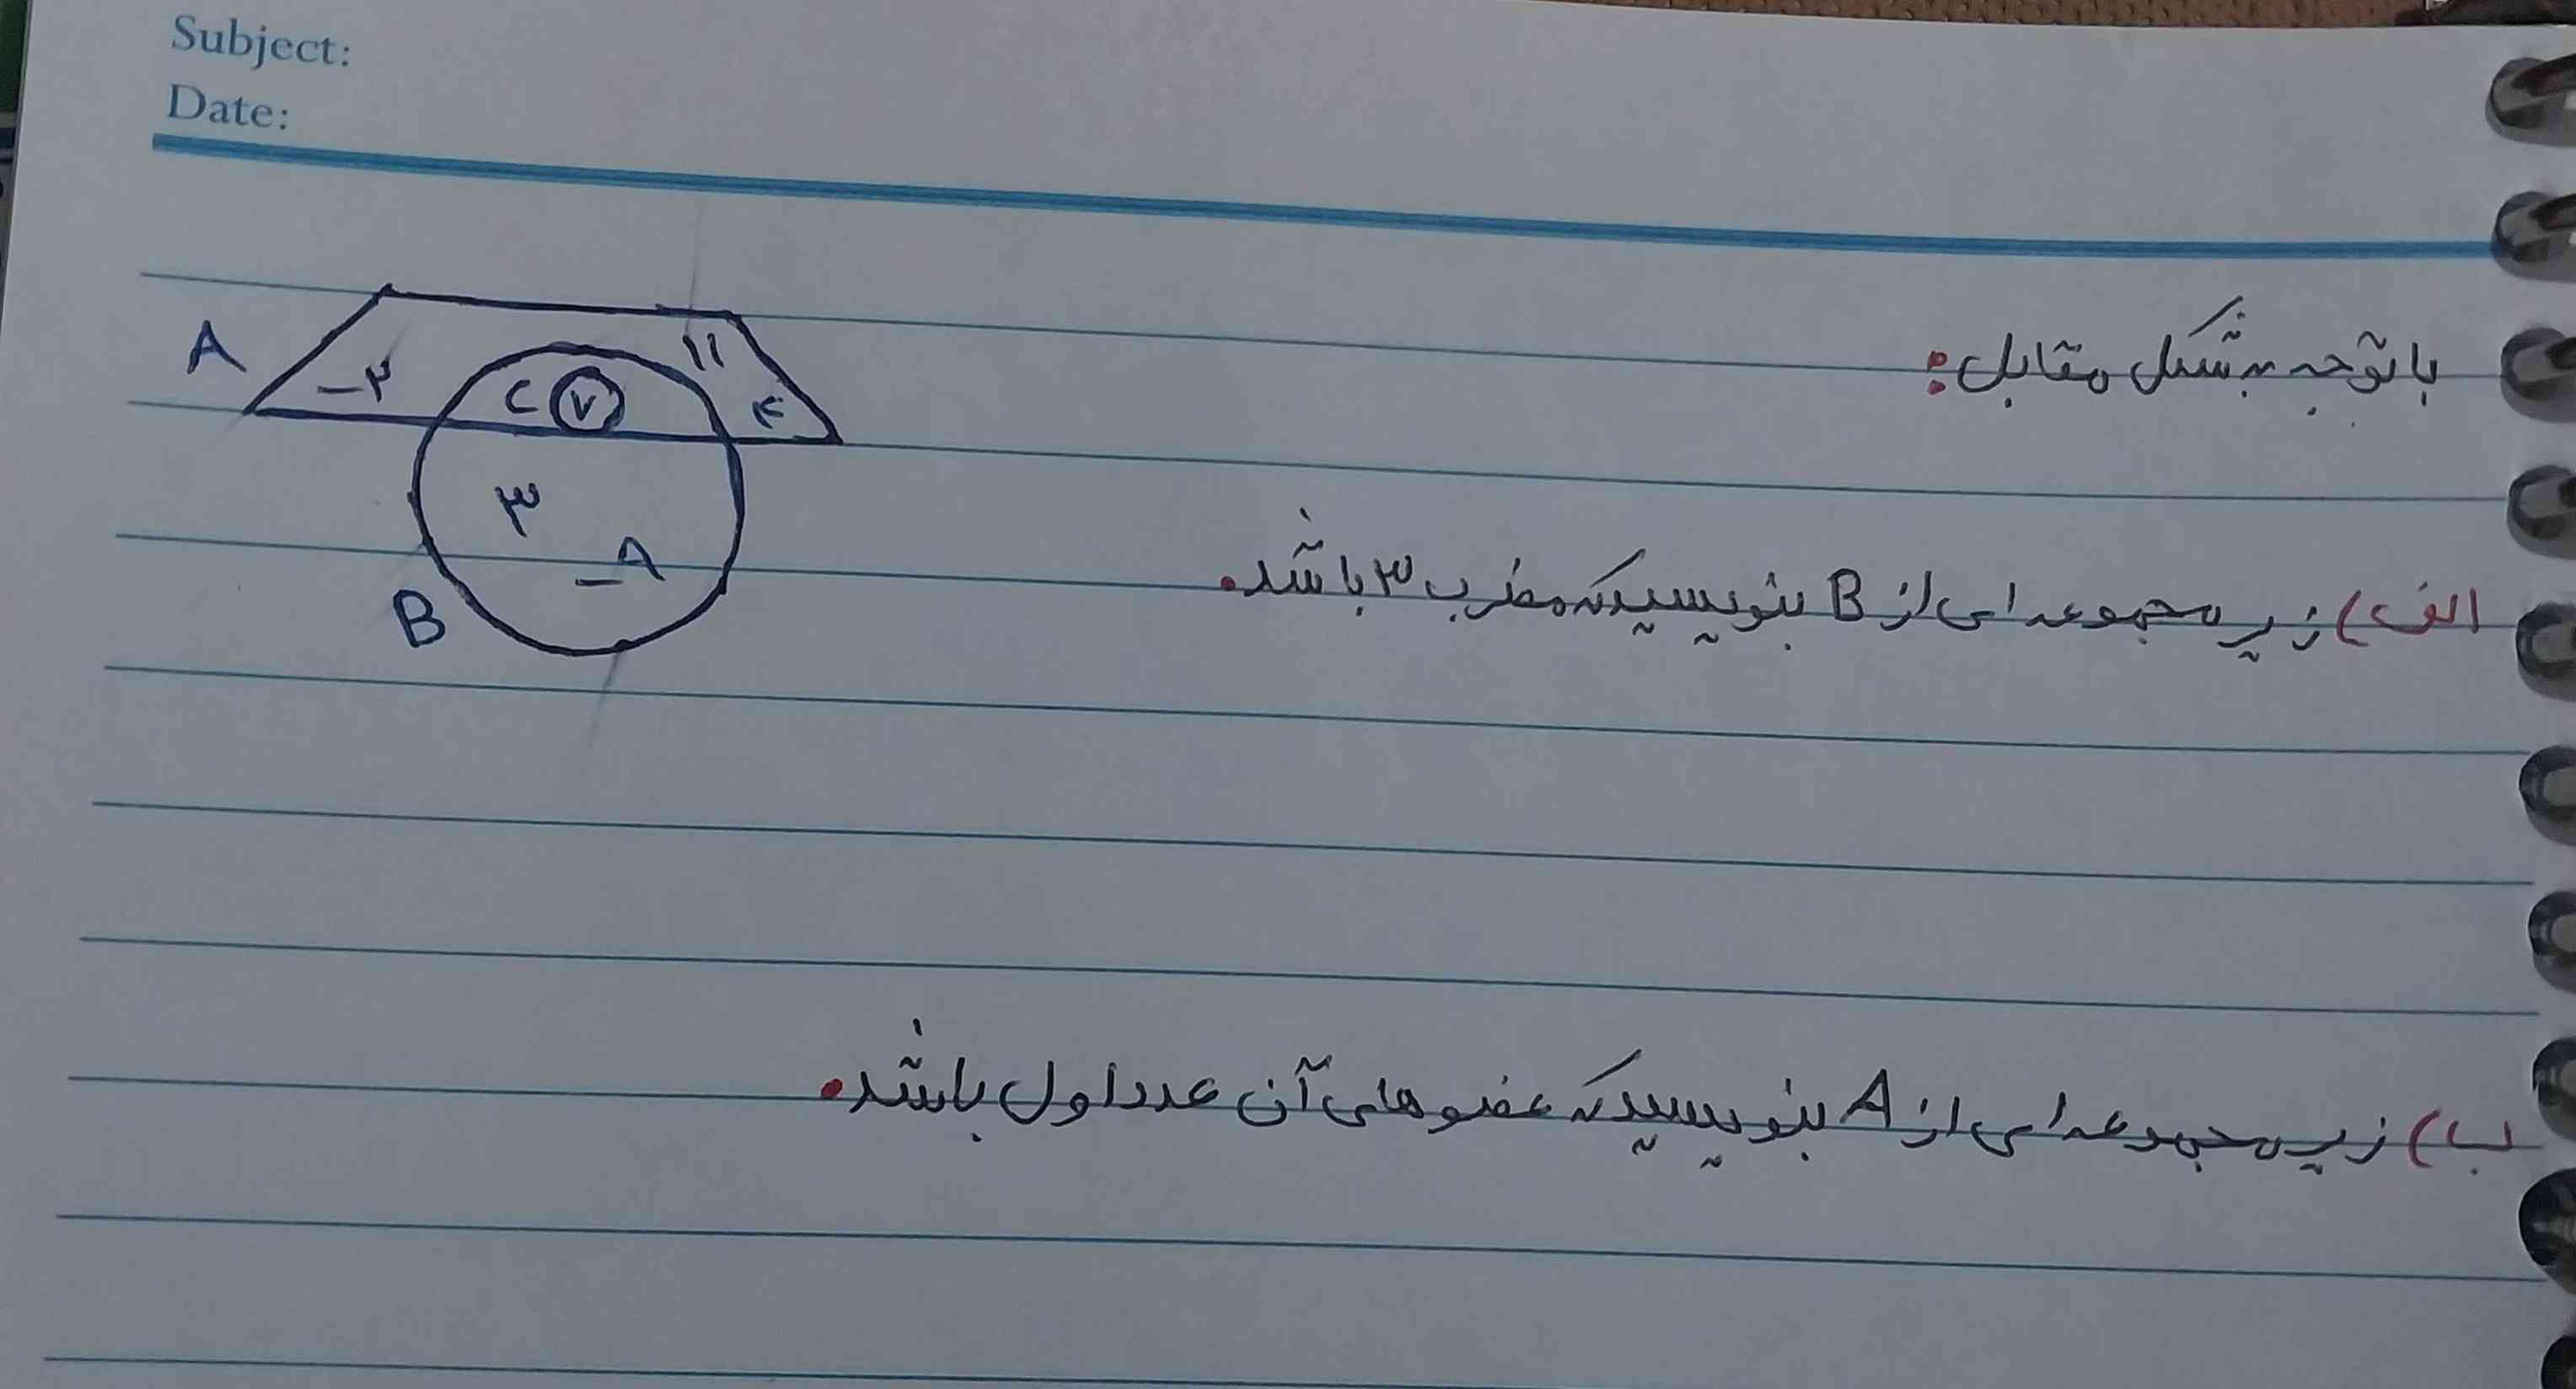 Subject:
Date:
با توجه به شکل مقابل:
A
-۲
C
۷
۱۱
۴
۳
-A
B
الف) زیر مجموعه ای از B بنویسید که مضرب ۳ باشد.
ب) زیر مجموعه ای از A بنویسید که عضوهای آن عدد اول باشد.